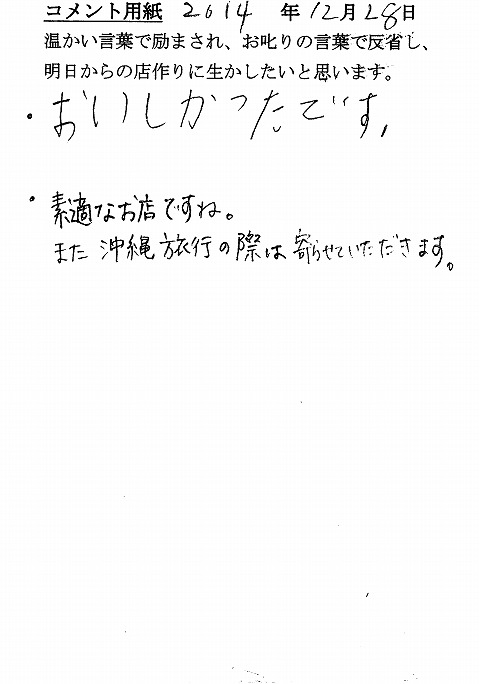 コメント用紙 2014 年 12月 28日
温かい言葉で励まされ、お叱りの言葉で反省し、
明日からの店作りに生かしたいと思います。
・おいしかったです。
・素適なお店ですね。
また沖縄旅行の際は寄らせていただきます。